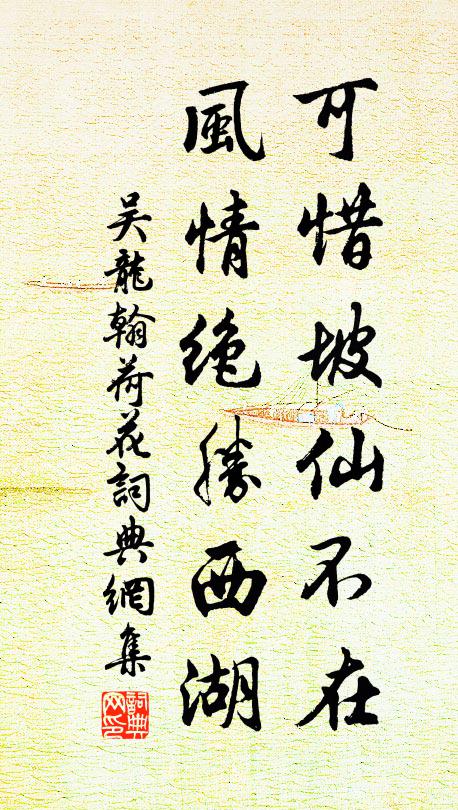 可惜坡仙不在
風情絶勝西湖
吴龍翰荷花詞典網集
詞典网印